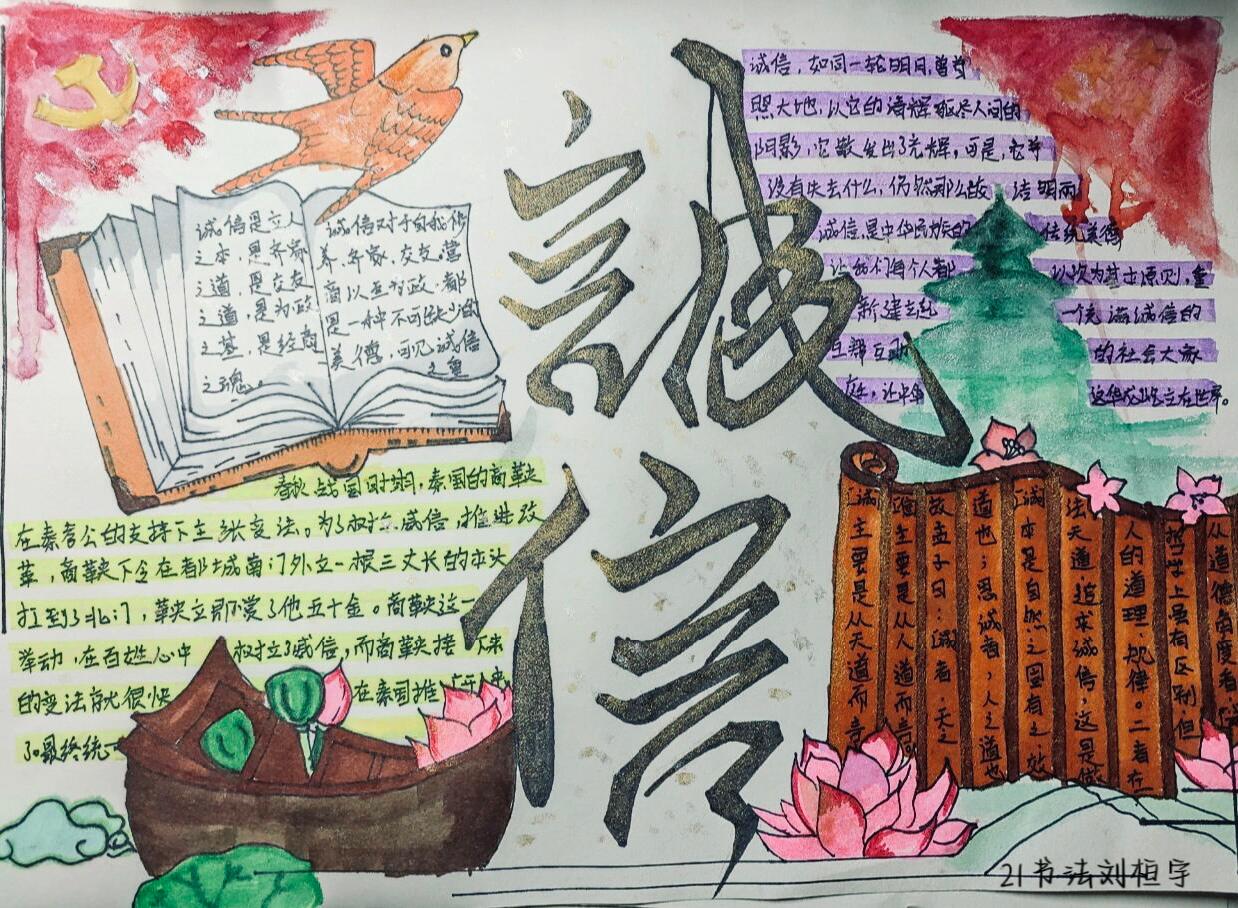 誠信
诚信是立人
之本，是齐家
之道，是交友
之道，是为政
之基，是经商
之魂。
诚信对于自我修
养、齐家、交友、营
商以至为政，都
是一种不可缺少的
美德，可见诚信
之重
诚信，如同一轮明月，普
照大地，以它的清辉驱尽人间的
阴影，它散发出了光辉，可是，它并
没有失去什么，仍然那么皎洁明丽
诚信是中华民族的传统美德
让我们每个人都以次为基士原则，重
新建立起一个充满诚信的
互帮互助的社会大家
庭，让中华这伟屹立在世界。
春秋战国时期，秦国的商鞅
在秦孝公的支持下主张变法。为了树立威信，推进改
革，商鞅下令在都城南门外立一根三丈长的木头
扛到了北门，鞅立即赏了他五十金。商鞅这一
举动，在百姓心中树立了威信，而商鞅接下来
的变法就很快在秦国推广
了。最终统一
诚主要是从天道而言
信主要是从人道而言
故孟子曰：诚者，天之
道也；思诚者，人之道也
诚本是自然之固有之效
法天道、追求诚信，这是做
人的道理、规律。二者在
哲学上虽有区别但
从道德角度看
21书法刘桓宇